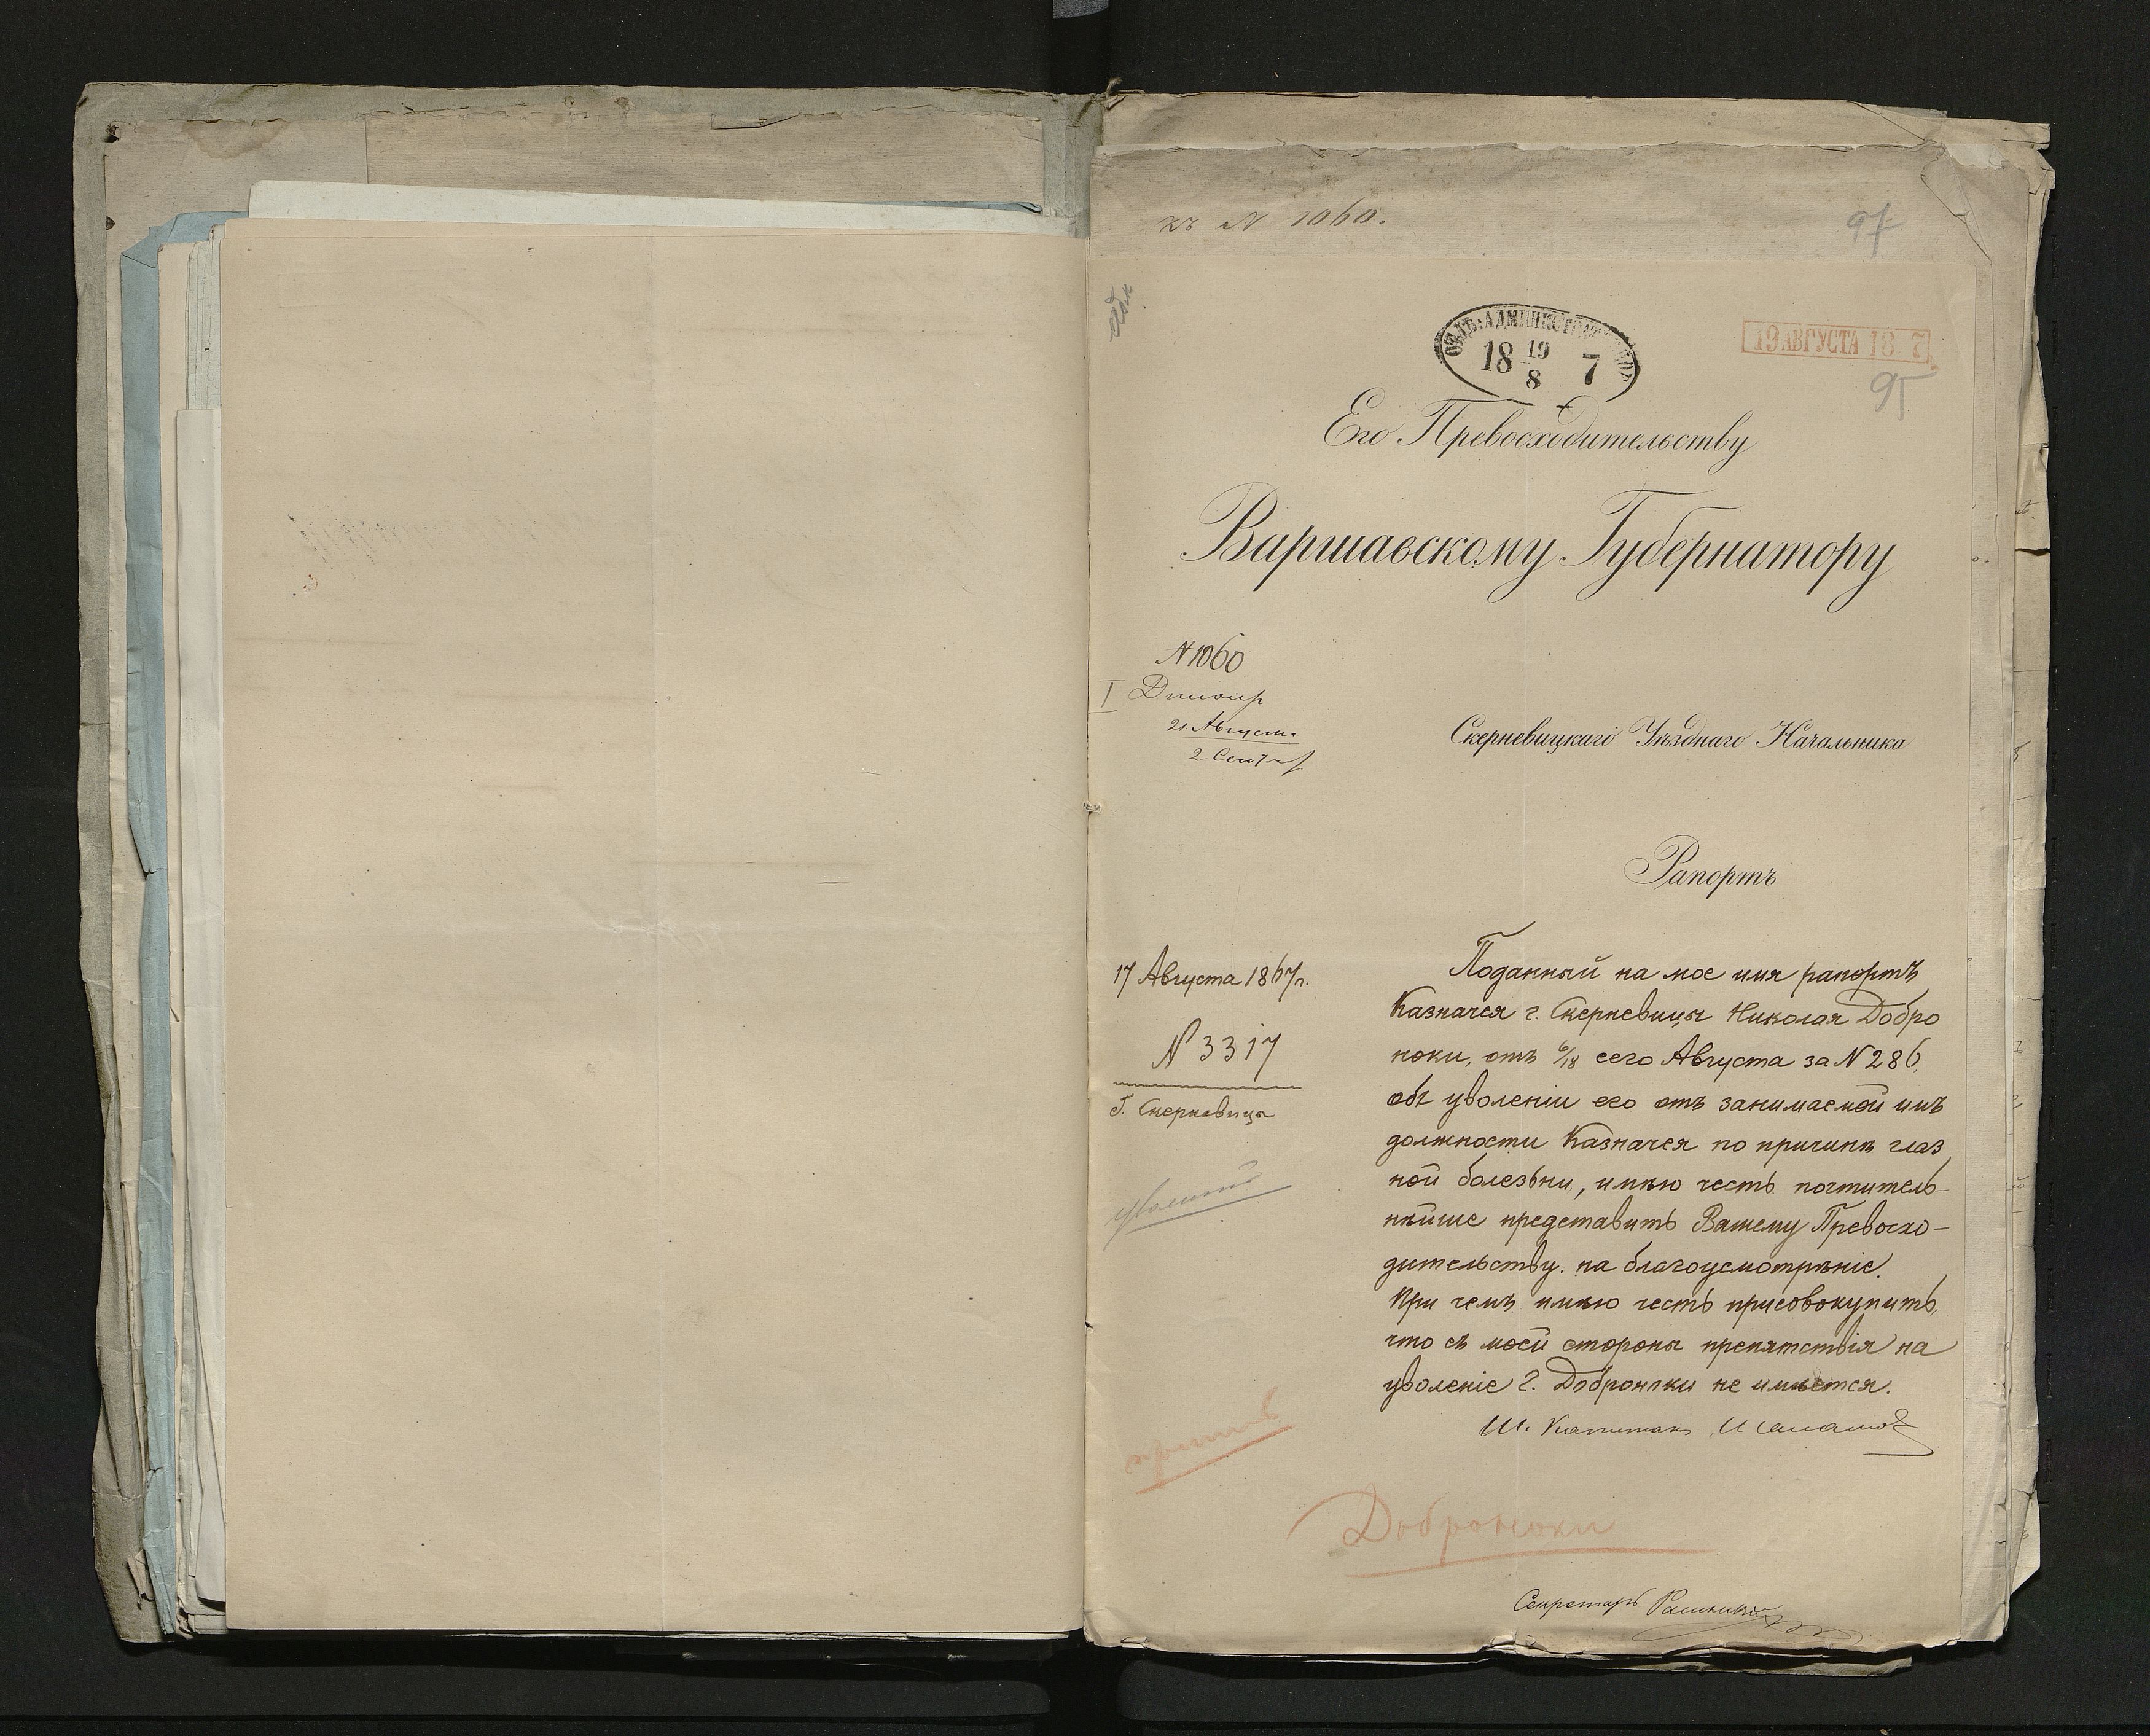 къ N 1060.
97
19 АВГУСТА 18 7
ОТД: АДМИНИСТРАТИВНОЕ
18 19/8 7
95
Его Превосходительству
Варшавскому Губернатору
N 1060
I
21 Августа
2 Сент
Скерневицкаго Уѣзднаго Начальника
Рапортъ
17 Августа 1867 г.
N 3317
Г. Скерневицы
уволить
Поданный на мое имя рапортъ
Казначея г. Скерневицы Николая Добро
ноки, отъ 6/18 сего Августа за N 286,
объ уволеніи его отъ занимаемой имъ
должности Казначея по причинѣ глаз
ной болезьни, имѣю честь почтитель-
нѣйше представить Вашему Превосхо-
дительству на благоусмотрѣніе.
При чемъ имѣю честь присовокупить,
что съ моей стороны препятствія на
уволеніе г. Доброноки не имѣется.
Ш. Капитанъ
Доброноки
Секретарь